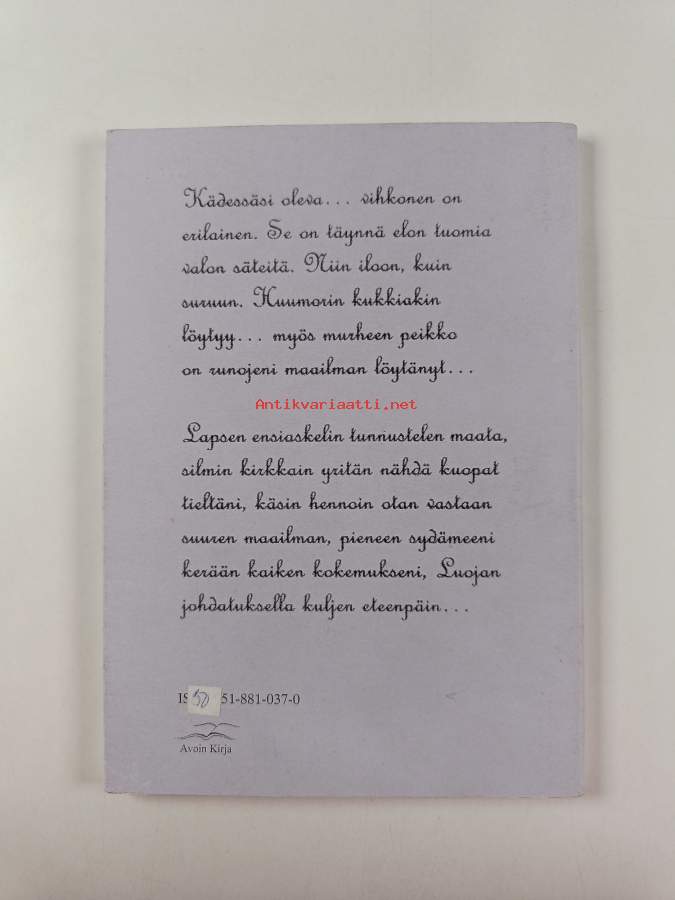 Kädessäsi oleva... vihkonen on
erilainen. Se on täynnä elon tuomia
valon säteitä. Niin iloon, kuin
suruun. Huumorin kukkiakin
löytyy... myös murheen peikko
on runojeni maailman löytänyt...
Antikvariaatti.net
Lapsen ensiaskelin tunnustelen maata,
silmin kirkkain yritän nähdä kuopat
tieltäni, käsin hennoin otan vastaan
suuren maailman, pieneen sydämeeni
kerään kaiken kokemukseni, Luojan
johdatuksella kuljen eteenpäin...
IS 50 51-881-037-0
Avoin Kirja